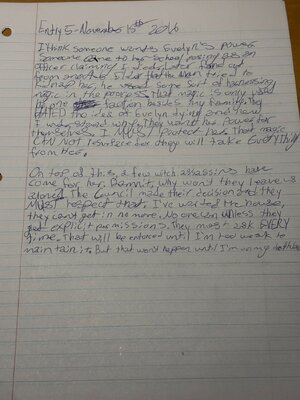 Entry 5 - November 15th 2016
I think someone wants Evelyn's power.
Someone came to her school posing as an
officer claiming I died. Later found out
from another Elder that the man tried to
kidnap her, he used some sort of harnessing
magic in the process. That magic is only used
by one faction besides my family. They
HATED the idea of Evelyn dying and now
I understand why. They want her power for
themselves. I MUST protect her. That magic
CAN NOT resurface or they will take EVERYTHING
from Her.
On top of this, a few witch assassins have
come for her. Damnit, why won't they leave us
alone? The Council made their decision and they
MUST respect that. I've warded the house,
they can't get in no more. No one can unless they
get explicit permissions. They must ask EVERY
time. That will be enforced until I'm too weak to
maintain it. But that won't happen until I'm on my deathbed